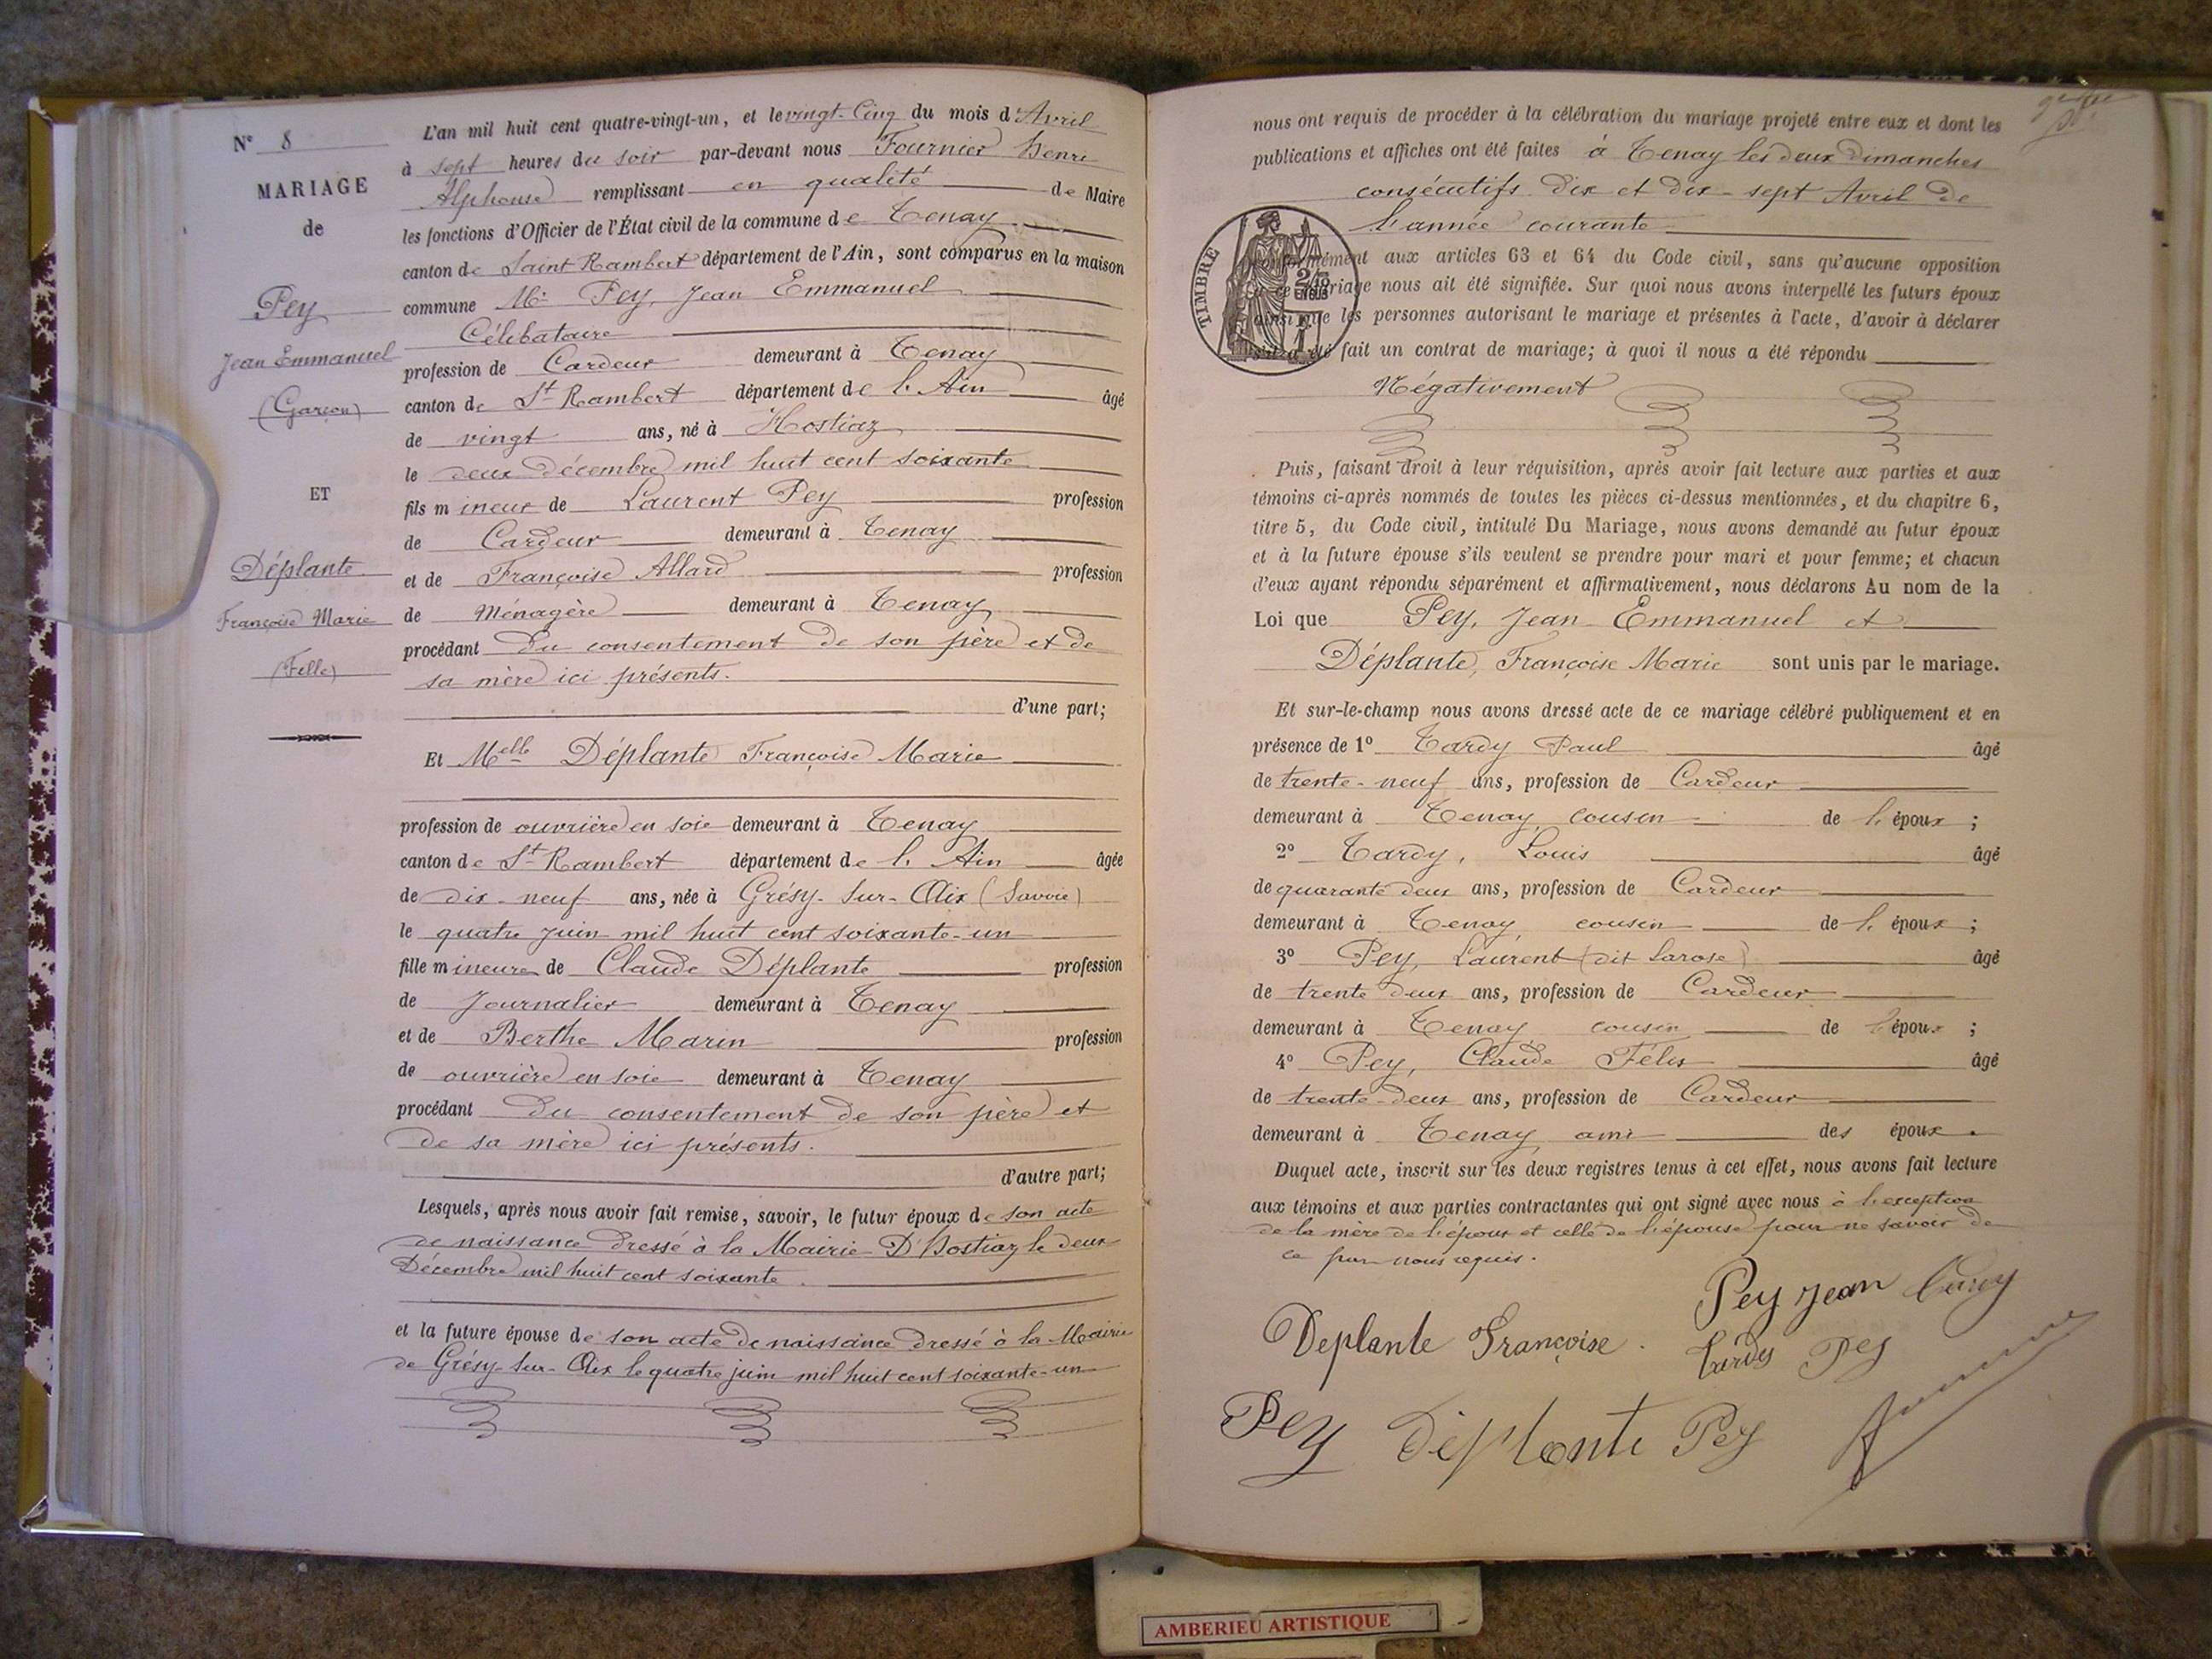 N° 8
MARIAGE
de
Pey
Jean Emmanuel
(Garçon)
ET
Déplante
Françoise Marie
(Fille)
L'an mil huit cent quatre-vingt-un, et le vingt-Cinq du mois d'Avril
à sept heures du soir par-devant nous Fournier Henri
Alphonse remplissant en qualité de Maire
les fonctions d'Officier de l'État civil de la commune de Tenay
canton de Saint Rambert département de l'Ain, sont comparus en la maison
commune Mr Pey, Jean Emmanuel
Célibataire
profession de Cardeur demeurant à Tenay
canton de St Rambert département de l'Ain âgé
de vingt ans, né à Hostiaz
le deux Décembre mil huit cent soixante
fils mineur de Laurent Pey profession
de Cardeur demeurant à Tenay
et de Françoise Allard profession
de Ménagère demeurant à Tenay
procédant du consentement de son père et de
sa mère ici présents.
d'une part;
Et Melle Déplante Françoise Marie
profession de ouvrière en soie demeurant à Tenay
canton de St Rambert département de l'Ain âgée
de dix-neuf ans, née à Grésy-sur-Aix (Savoie)
le quatre juin mil huit cent soixante-un
fille mineure de Claude Déplante profession
de Journalier demeurant à Tenay
et de Berthe Marin profession
de ouvrière en soie demeurant à Tenay
procédant du consentement de son père et
de sa mère ici présents.
d'autre part;
Lesquels, après nous avoir fait remise, savoir, le futur époux de son acte
de naissance dressé à la Mairie D'Hostiaz le deux
Décembre mil huit cent soixante.
et la future épouse de son acte de naissance dressé à la Mairie
de Grésy-sur-Aix le quatre juin mil huit cent soixante-un
nous ont requis de procéder à la célébration du mariage projeté entre eux et dont les
publications et affiches ont été faites à Tenay les deux Dimanches
consécutifs dix et dix-sept Avril de
l'année courante
conformément aux articles 63 et 64 du Code civil, sans qu'aucune opposition
à ce mariage nous ait été signifiée. Sur quoi nous avons interpellé les futurs époux
ainsi que les personnes autorisant le mariage et présentes à l'acte, d'avoir à déclarer
s'il a été fait un contrat de mariage; à quoi il nous a été répondu
Négativement
TIMBRE
Puis, faisant droit à leur réquisition, après avoir fait lecture aux parties et aux
témoins ci-après nommés de toutes les pièces ci-dessus mentionnées, et du chapitre 6,
titre 5, du Code civil, intitulé Du Mariage, nous avons demandé au futur époux
et à la future épouse s'ils veulent se prendre pour mari et pour femme; et chacun
d'eux ayant répondu séparément et affirmativement, nous déclarons Au nom de la
Loi que Pey, Jean Emmanuel et
Déplante, Françoise Marie sont unis par le mariage.
Et sur-le-champ nous avons dressé acte de ce mariage célébré publiquement et en
présence de 1° Tardy Paul âgé
de trente-neuf ans, profession de Cardeur
demeurant à Tenay, cousin de l'époux ;
2° Tardy, Louis âgé
de quarante deux ans, profession de Cardeur
demeurant à Tenay, cousin de l'époux ;
3° Pey, Laurent (dit Larose) âgé
de trente deux ans, profession de Cardeur
demeurant à Tenay cousin de l'époux ;
4° Pey, Claude Félix âgé
de trente-deux ans, profession de Cardeur
demeurant à Tenay, ami des époux.
Duquel acte, inscrit sur les deux registres tenus à cet effet, nous avons fait lecture
aux témoins et aux parties contractantes qui ont signé avec nous à l'exception
de la mère de l'époux et celle de l'épouse pour ne savoir de
ce par nous requis.
Pey Jean Tardy
Deplante Françoise. Tardy Pey
Pey Déplante Pey
AMBERIEU ARTISTIQUE